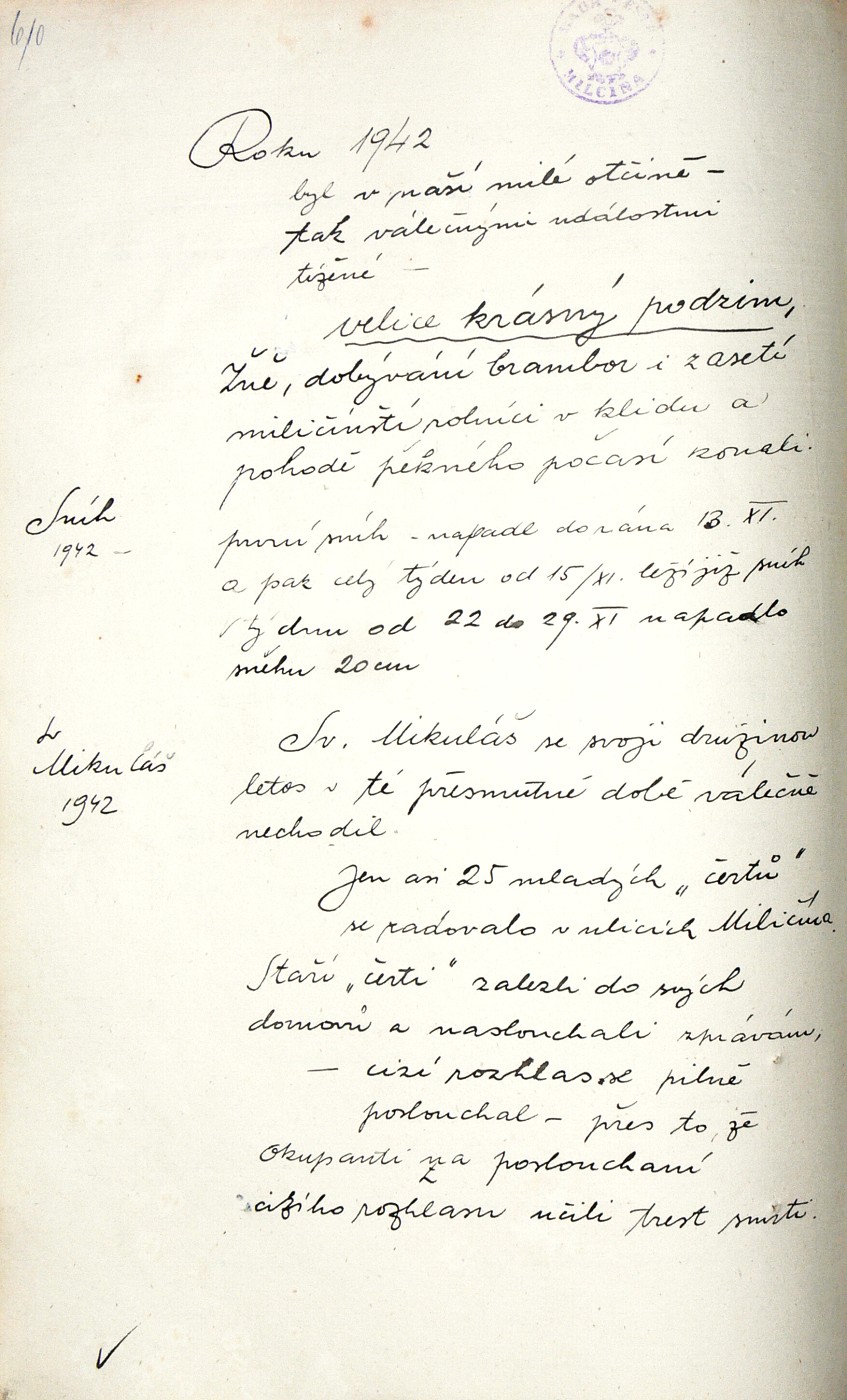 610
RADA MĚSTA
MILČÍNA
Roku 1942
byl v naší milé otčině –
tak válečnými událostmi
tížené –
velice krásný podzim,
Žně, dobývání brambor i zasetí
miličínští rolníci v klidu a
pohodě pěkného počasí konali.
Sníh
1942 –
první sníh – napadl do rána 13. XI.
a pak celý týden od 15/XI. leží již sníh
V týdnu od 22 do 29. XI napadlo
sněhu 20 cm
Sv
Mikuláš
1942
Sv. Mikuláš se svojí družinou
letos v té přesmutné době válečné
nechodil.
Jen asi 25 mladých „čertů“
se radovalo v ulicích Miličína.
Staří „čerti“ zalezli do svých
domovů a naslouchali zprávám,
– cizí rozhlas se pilně
poslouchal – přes to, že
Okupanti za poslouchaní
cizího rozhlasu učili trest smrti.